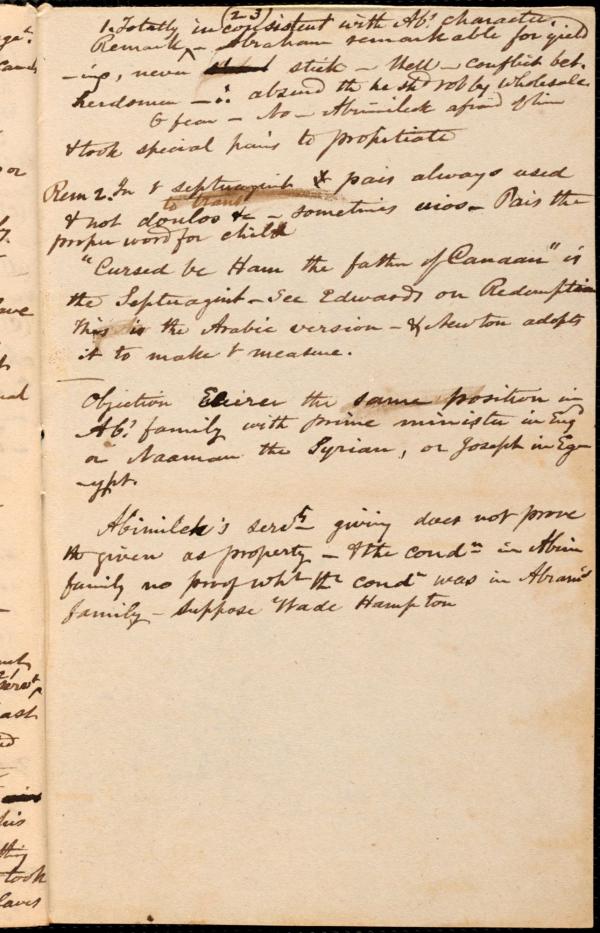 (23)
1. Totally inconsistent with Ab.s character.
Remark, Abraham remarkable for yield
-ing, never stick - Well - conflict bet.
herdsmen - ∴ absurd th he shd rob by wholesale
& fear - No - Abimilek afraid of him
& took special pains to propitiate
Rem 2. In & septuagint & pais always used
to trans
& not doulos &c - sometimes uios - Pais the
proper word for child
"Cursed be Ham the father of Canaan" is
the Septuagint - See Edwards on Redemption
this is the Arabic version - & Newton adopts
it to make & measure.
Objection Eliezer the same position in
Ab.s family with prime minister in Eng
or Naaman the Syrian, or Joseph in Eg-
-ypt.
Abimilek's servts giving does not prove
th given as property - & the condn in Abim
family no proof wht the condn was in Abrams
family - suppose Wade Hampton
ega.
or
ave
servt
ast
ed
his
thing
took
laves